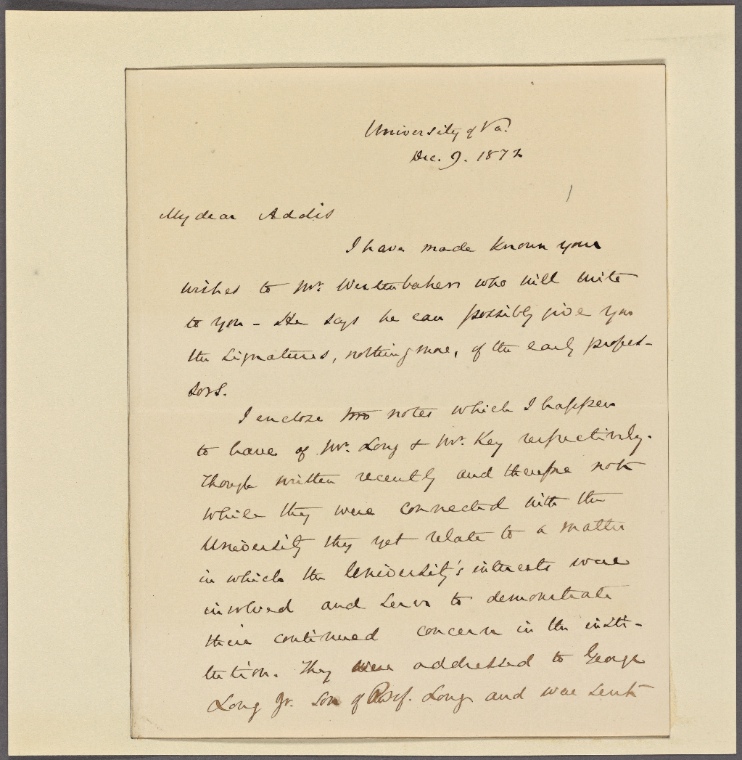 University of Va.
Dec. 9. 1872
My dear Addis
I have made known your
wishes to Mr. Wertenbaker who will write
to you - He says he can possibly give you
the signatures, nothing more, of the early profes-
sors.
I enclose two notes which I happen
to have of Mr. Long & Mr. Key respectively.
Though written recently and therefore not
while they were connected with the
University they yet relate to a matter
in which the University's interests were
involved and serve to demonstrate
their continued concern in the insti-
tution. They were addressed to George
Long Jr. son of Prof. Long and were sent